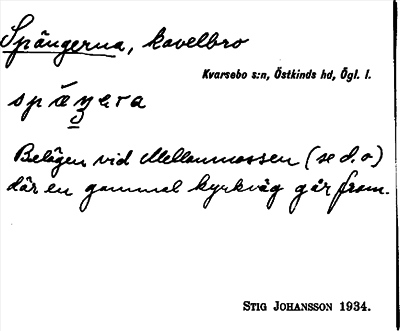 Spångerna, kavelbro
Kvarsebo s:n, Östkinds hd, Ögl. l.
spæŋera
Belägen vid Mellanmossen (se d. o)
där en gammal kyrkväg går fram.
STIG JOHANSSON 1934.